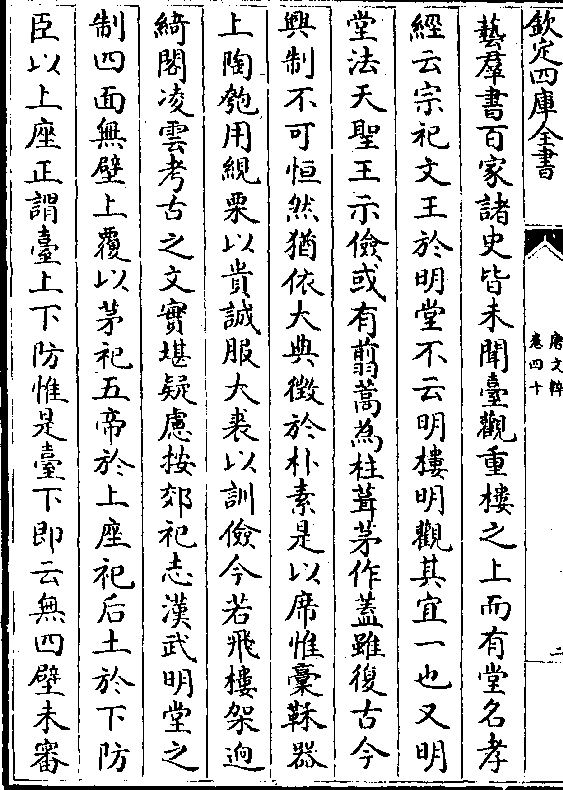 欽定四庫全書
唐文粹
卷四十
二
藝羣書百家諸史皆未聞臺觀重樓之上而有堂名孝
經云宗祀文王於明堂不云明樓明觀其宜一也又明
堂法天聖王示儉或有翦蒿為柱葺茅作蓋雖復古今
異制不可恒然猶依大典徵於朴素是以席惟藁秣器
上陶匏用繭栗以貴誠服大裘以訓儉今若飛樓架逈
綺閣凌雲考古之文實堪疑慮按郊祀志漢武明堂之
制四面無壁上覆以茅祀五帝於上座祀后土於下防
臣以上座正謂臺上下防惟是臺下即云無四壁未審